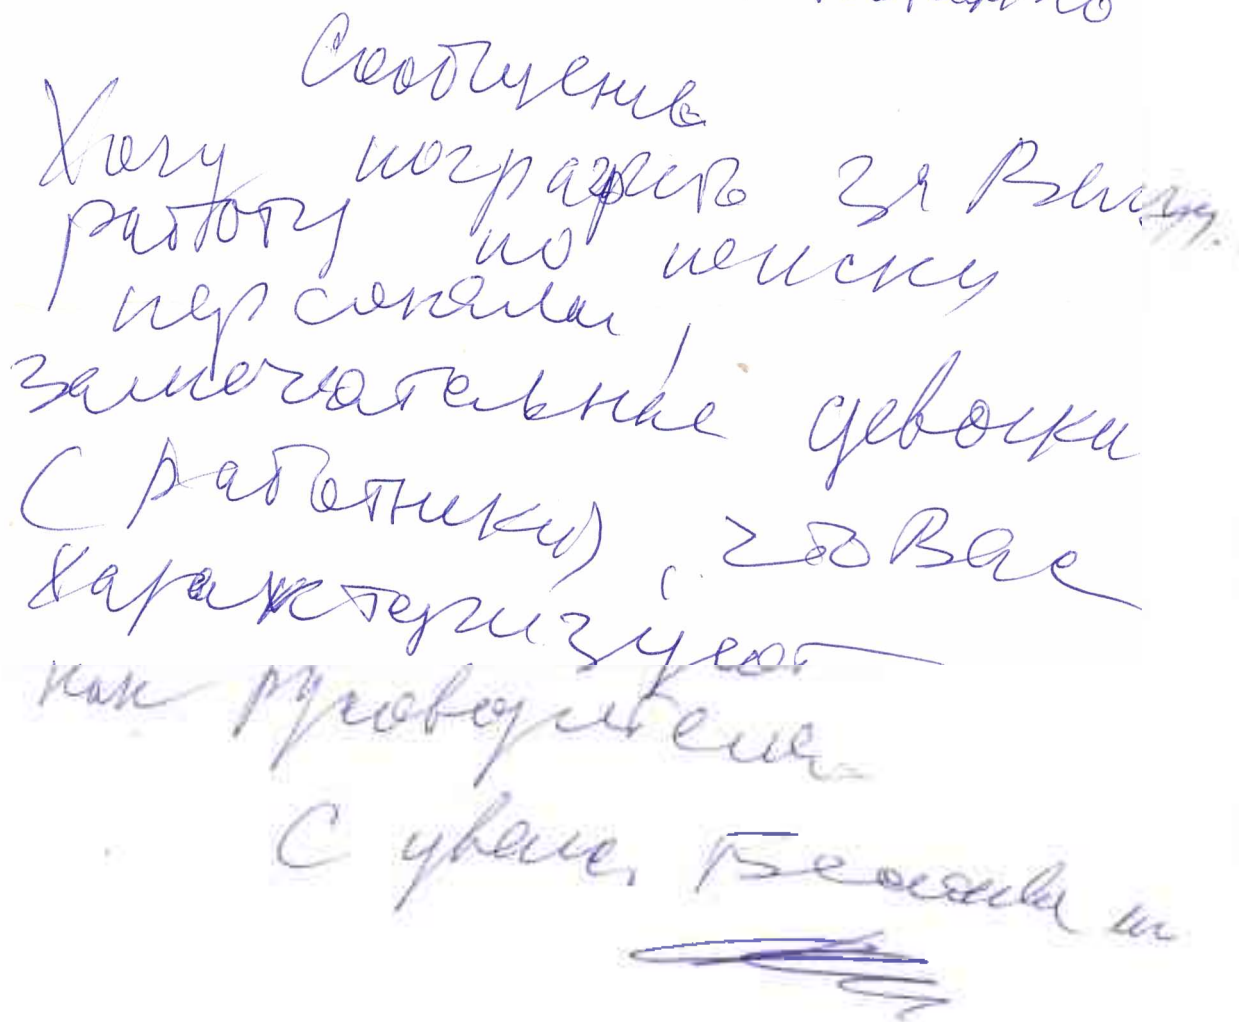 Сообщение
Хочу награзить за Вашу
работу по поиску
персонала,
замечательные девочки
(работники), что Вас
характеризует
как руководителя
С уваж.